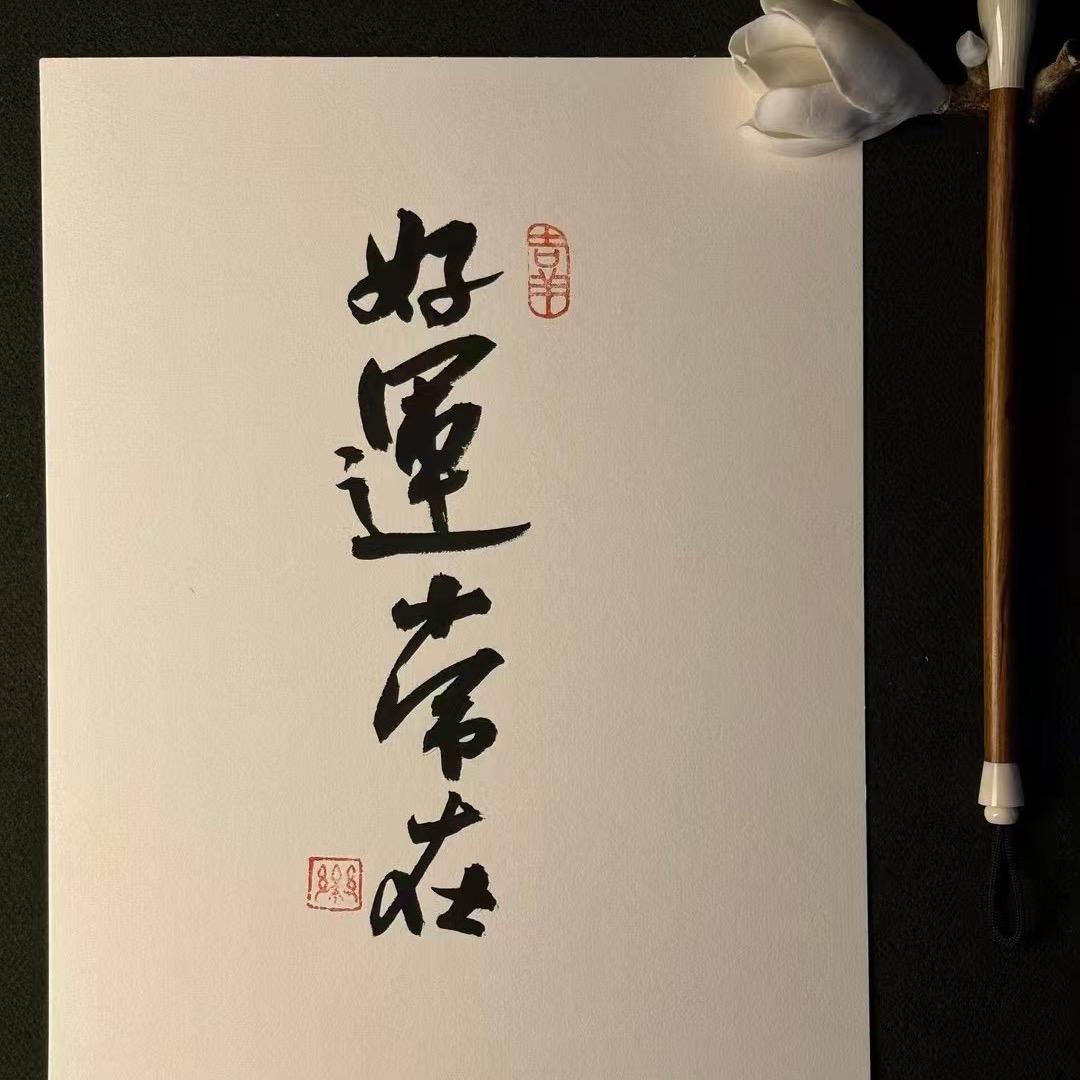 好運常在
吉羊